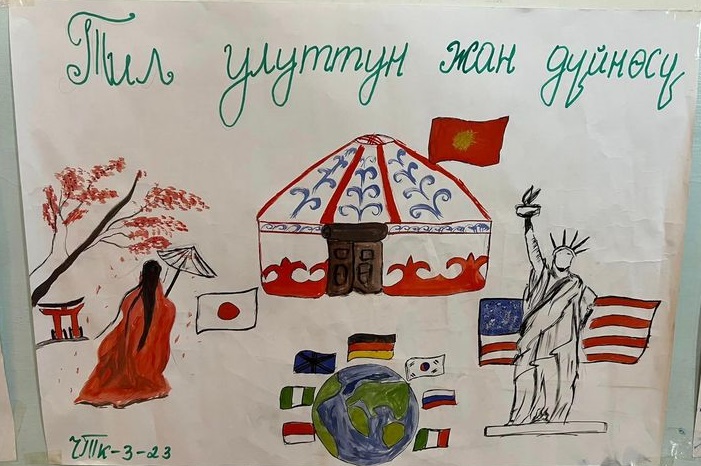 Тил улуттун жан дүйнөсү
ЧТК-3-23